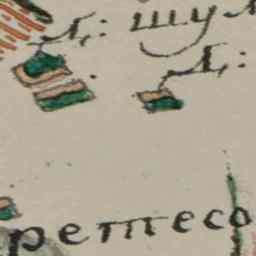 Д: шул
Д:
ретесо